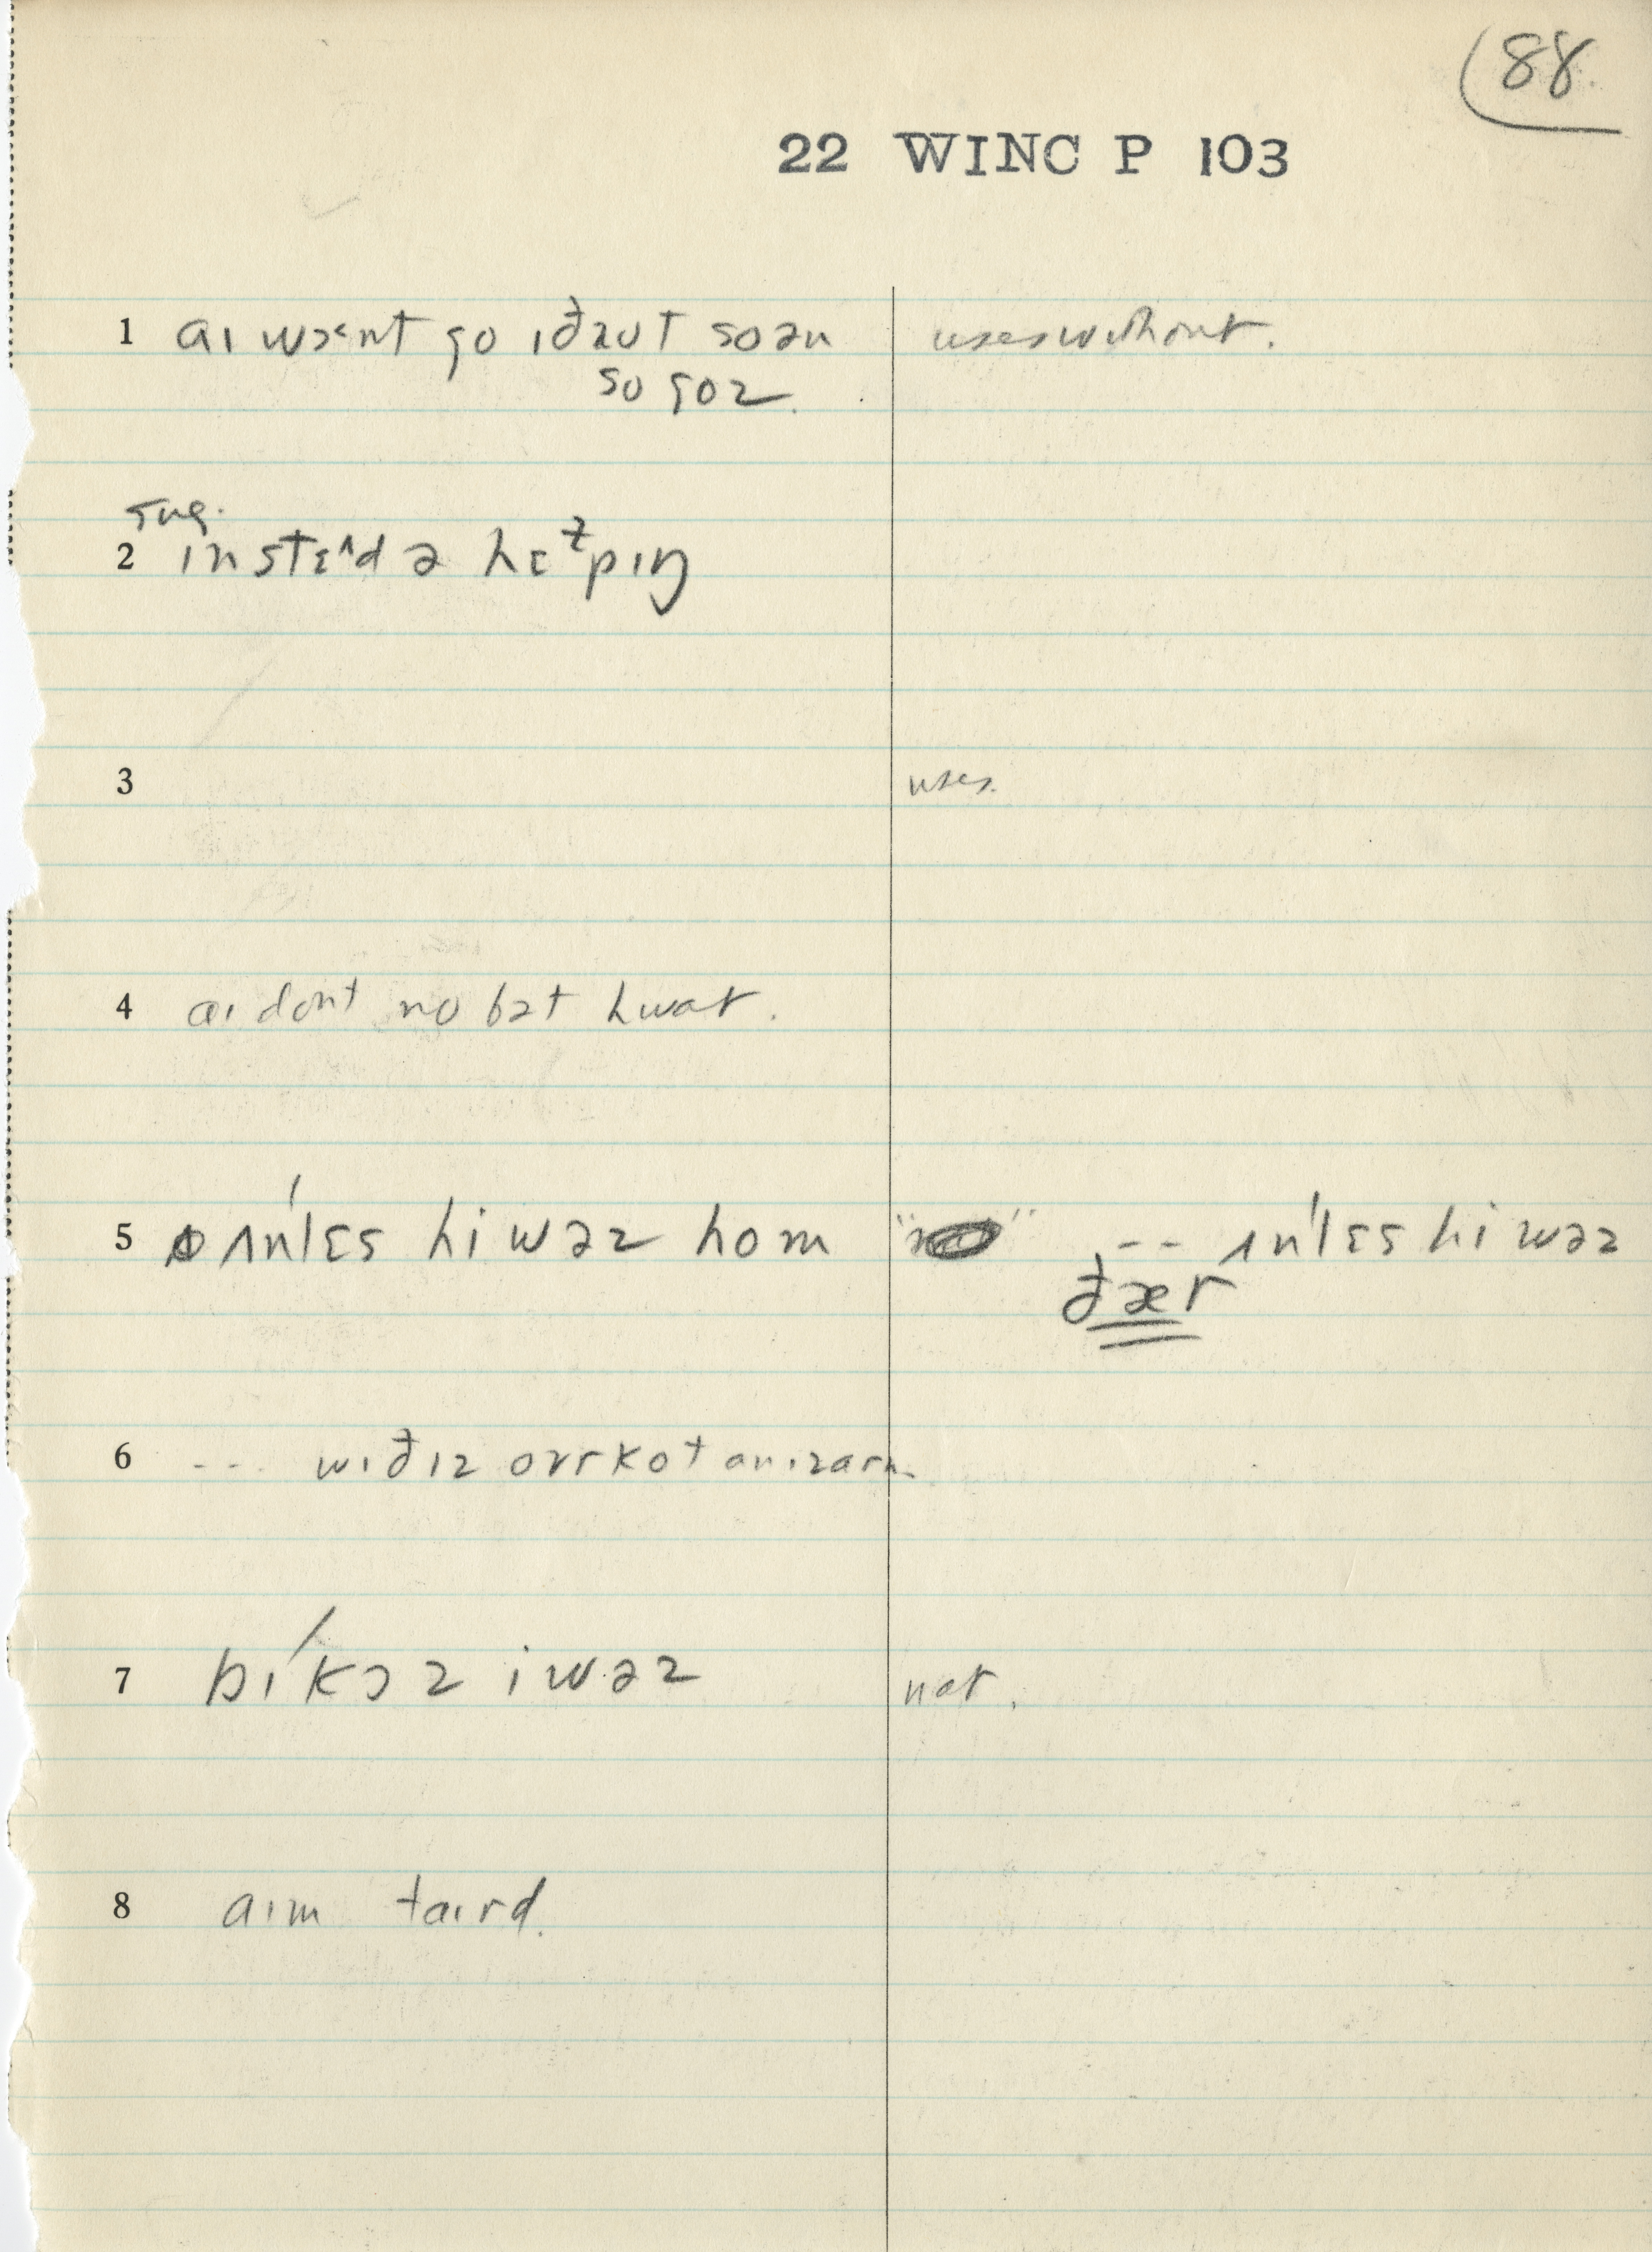 88
22 WINC P 103
1 aɪ wɔ˂nt go ɪðaʊt soən uses without.
so goz.
sug.
2 ɪnstɛ^d ə hɛɫpɪŋ
3 uses.
4 aɪ dont no bət hwat.
5 ʌn'lɛs hi wəz hom -- ʌn'lɛs hi wəz
ðær
6 --- wɪðɪz ovrkot
7 bɪ'kɔz i wəz not.
8 aɪm taɪrd.